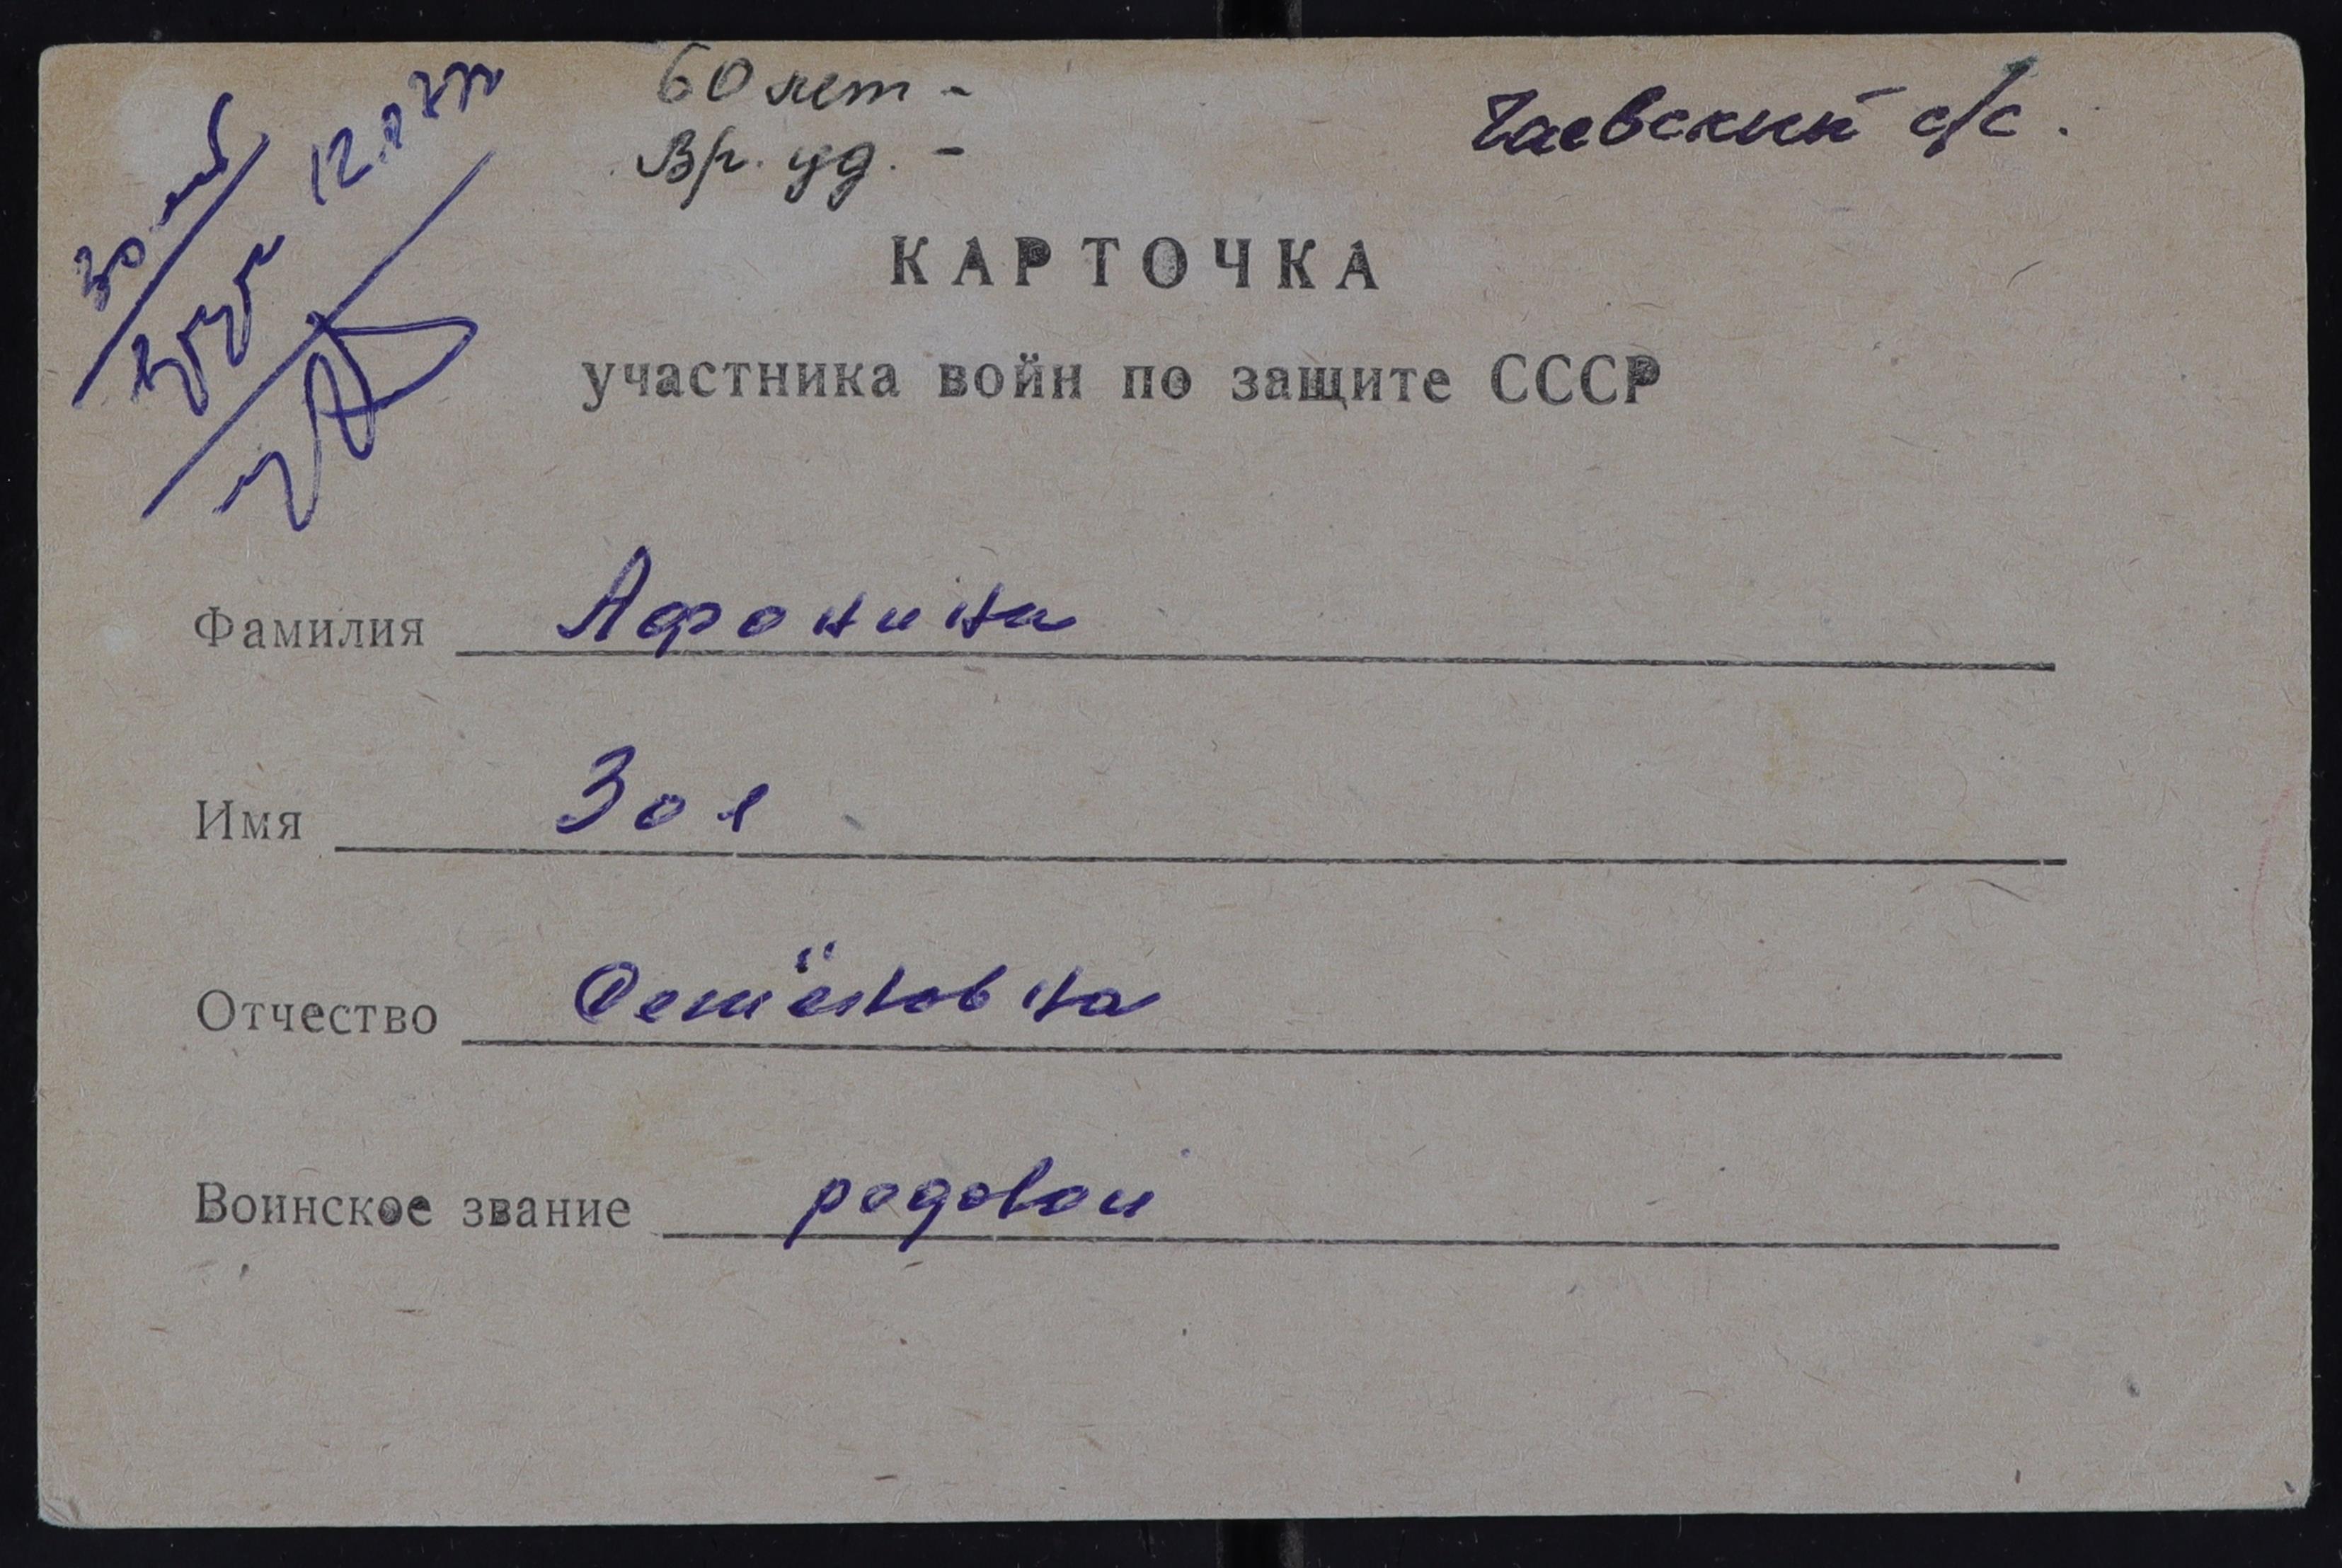 60 лет -
Вр. уд. -
Чаевский с/с.
КАРТОЧКА
участника войн по защите СССР
Фамилия Афонина
Имя Зоя
Отчество Семёновна
Воинское звание рядовои